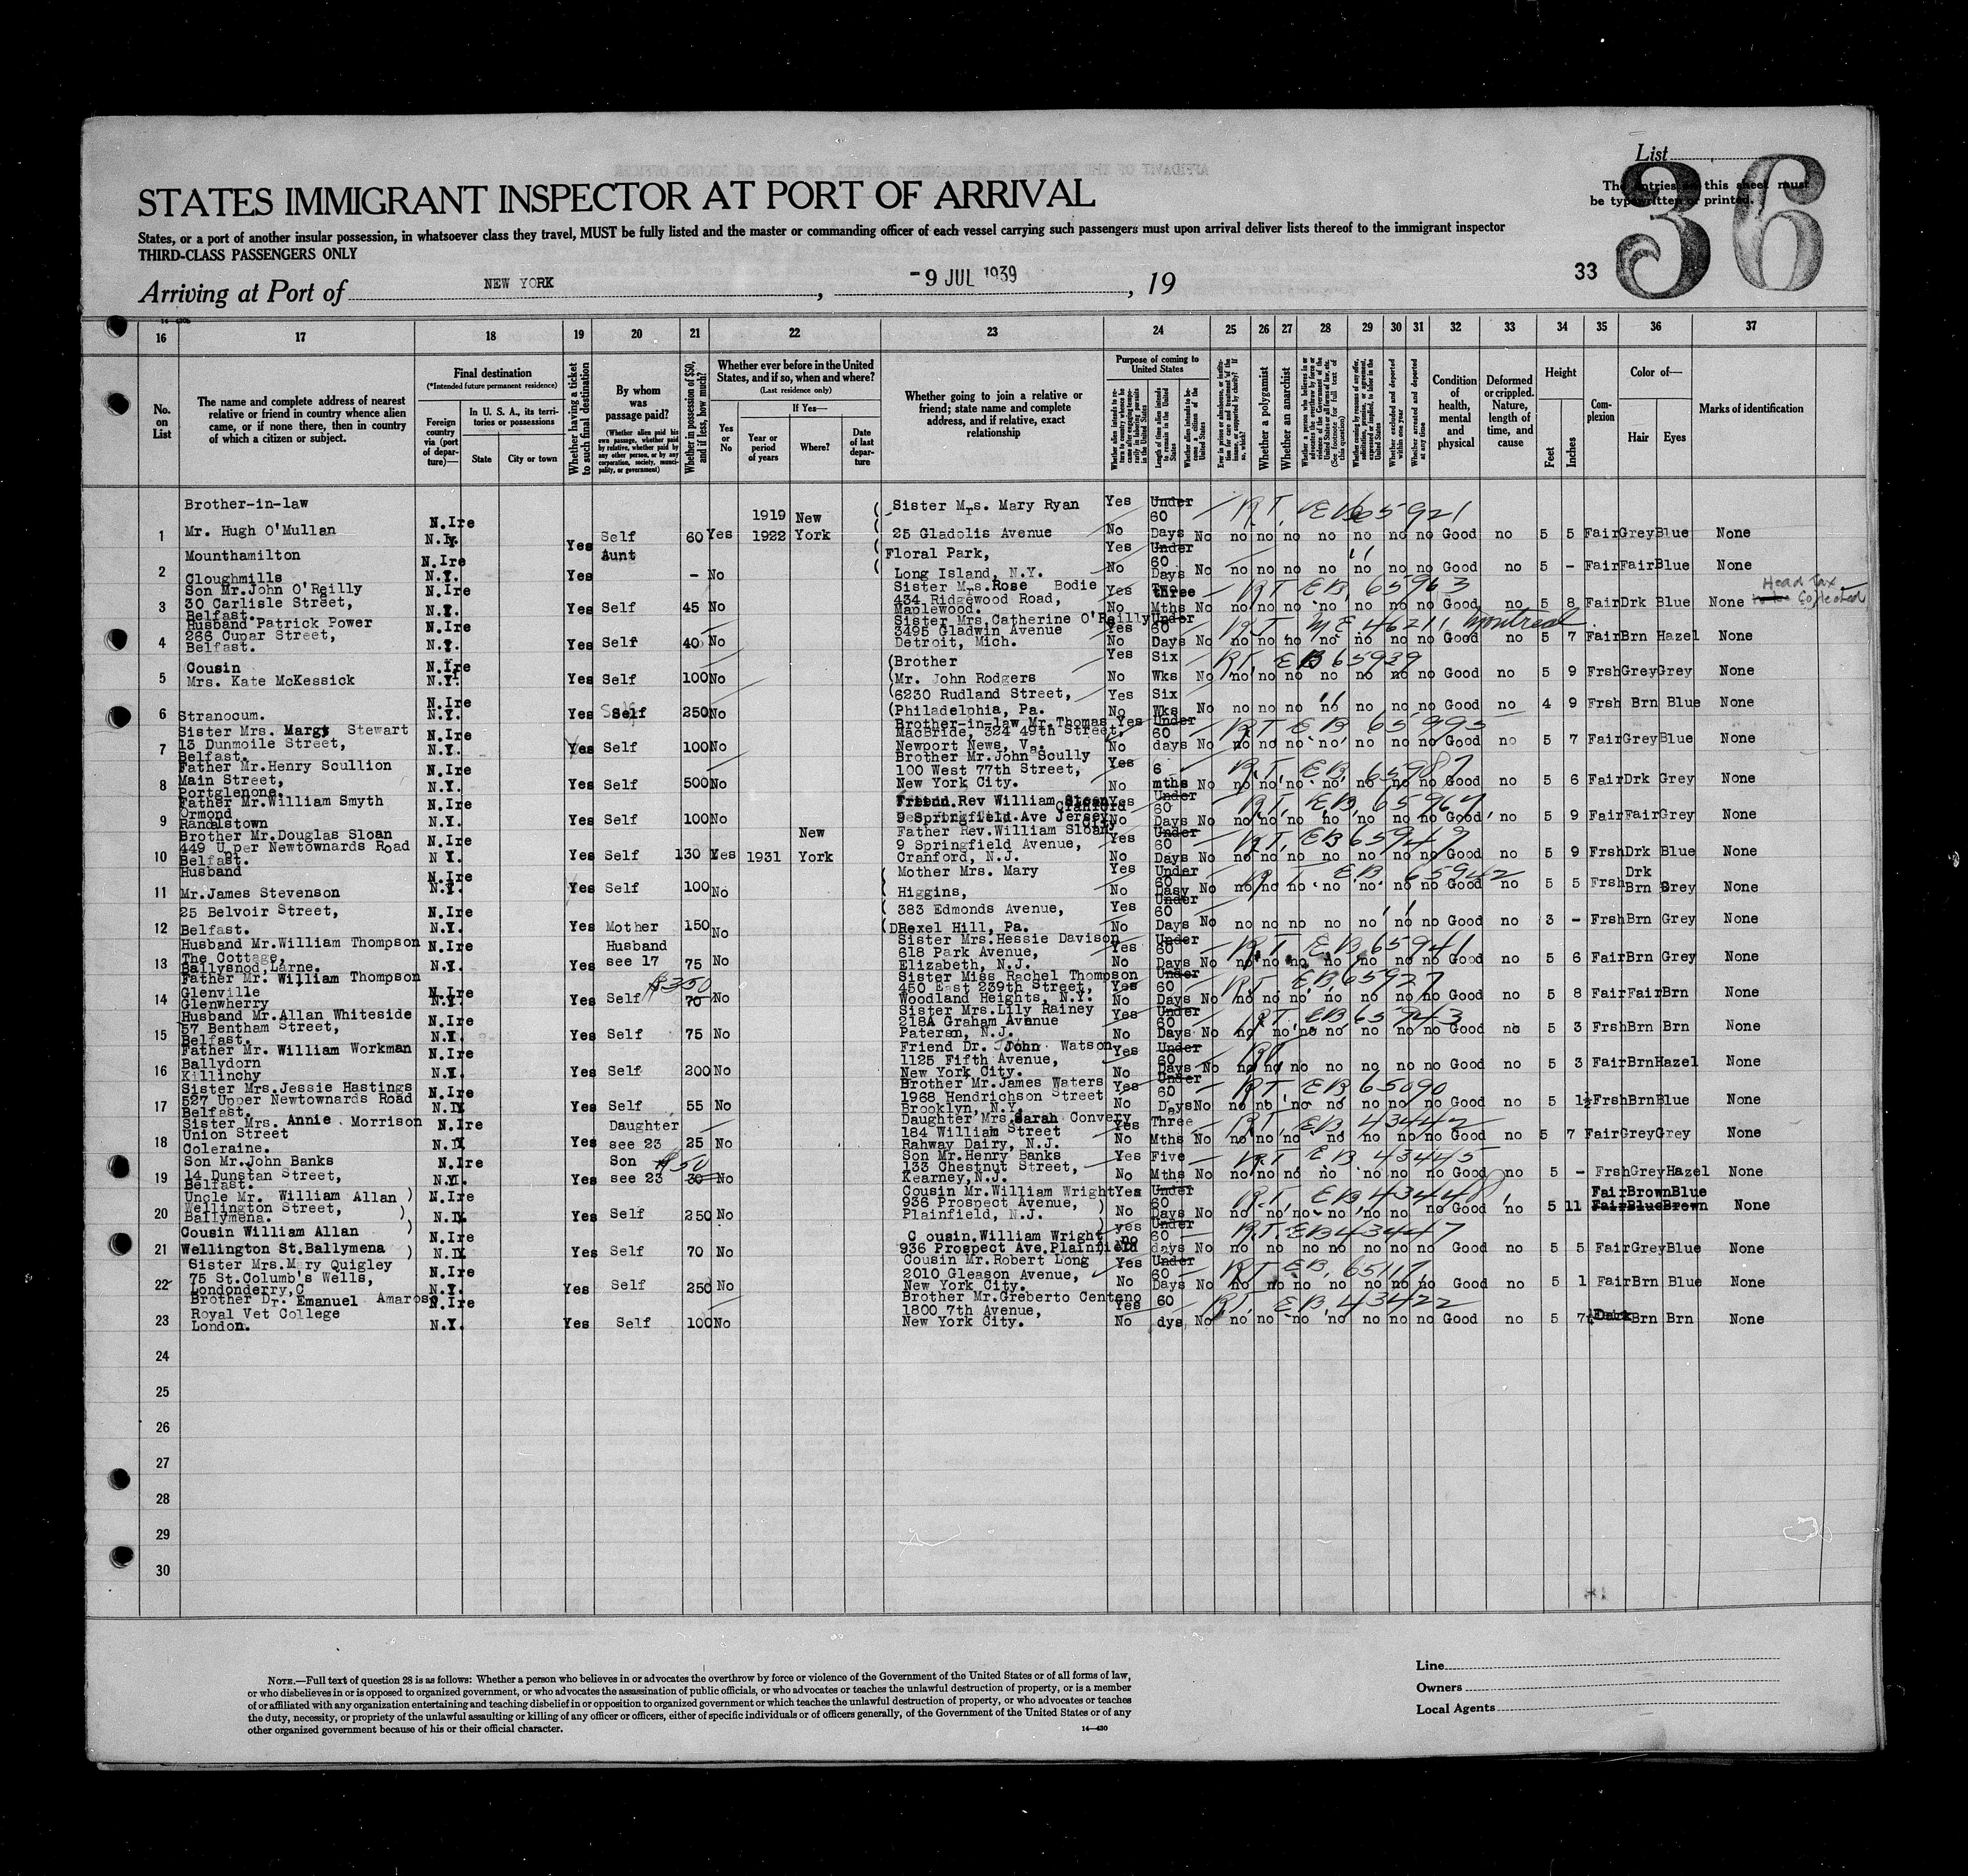 List
36
The entries on this sheet must
be typewritten or printed.
STATES IMMIGRANT INSPECTOR AT PORT OF ARRIVAL
States, or a port of another insular possession, in whatsoever class they travel, MUST be fully listed and the master or commanding officer of each vessel carrying such passengers must upon arrival deliver lists thereof to the immigrant inspector
THIRD-CLASS PASSENGERS ONLY
33
Arriving at Port of NEW YORK, -9 JUL 1939, 19
16 17 18 19 20 21 22 23 24 25 26 27 28 29 30 31 32 33 34 35 36 37
No. on List
The name and complete address of nearest relative or friend in country whence alien came, or if none there, then in country of which a citizen or subject.
Final destination
(*Intended future permanent residence)
Foreign country via (port of departure)—
In U. S. A., its territories or possessions
State
City or town
Whether having a ticket to such final destination
By whom was passage paid?
(Whether alien paid his own passage, whether paid by relative, whether paid by any other person, or by any corporation, society, municipality, or government)
Whether in possession of $50, and if less, how much?
Whether ever before in the United States, and if so, when and where?
(Last residence only)
Yes or No
If Yes—
Year or period of years
Where?
Date of last departure
Whether going to join a relative or friend; state name and complete address, and if relative, exact relationship
Purpose of coming to United States
Length of time alien intends to remain in the United States
Whether a polygamist
Whether an anarchist
Condition of health, mental and physical
Deformed or crippled. Nature, length of time, and cause
Height
Feet
Inches
Complexion
Color of—
Hair
Eyes
Marks of identification
Brother-in-law Sister Mrs. Mary Ryan Yes Under 60 RT, EB 65921
1 Mr. Hugh O'Mullan N.Ire N.Y. Yes Self 60 Yes 1919 1922 New York 25 Gladolis Avenue No Days No no no no no no no no Good no 5 5 Fair Grey Blue None
Mounthamilton Aunt Floral Park, Yes Under 60
2 Cloughmills N.Ire N.Y. Yes - No Long Island, N.Y. No Days No no no no no no no no Good no 5 - Fair Fair Blue None
Son Mr.John O'Reilly Sister Mrs.Rose Bodie RT EB, 65963 Head Tax
3 30 Carlisle Street, N.Ire N.Y. Yes Self 45 No 434 Ridgewood Road, Yes three Mths No no no no no no no no Good no 5 8 Fair Drk Blue None Collected
Belfast. Maplewood. No
Husband Patrick Power Sister Mrs.Catherine O'Reilly Under RT ME 46211 Montreal
4 266 Cupar Street, N.Ire N.Y. Yes Self 40 No 3495 Gladwin Avenue Yes 60 Days No no no no no no no no Good no 5 7 Fair Brn Hazel None
Belfast. Detroit, Mich. No
Cousin Brother Yes Six RT, EB 65939
5 Mrs. Kate McKessick N.Ire N.Y. Yes Self 100 No Mr. John Rodgers No Wks No no no no no no no no Good no 5 9 Frsh Grey Grey None
6230 Rudland Street, Yes Six
6 Stranocum. N.Ire N.Y. Yes Self 250 No Philadelphia, Pa. No Wks No no no no no no no no Good no 4 9 Frsh Brn Blue None
Sister Mrs. Margt Stewart Brother-in-law Mr.Thomas Yes Under RT EB, 65995
7 13 Dunmoile Street, N.Ire N.Y. Yes Self 100 No MacBride, 324 49th Street, 60 days No no no no no no no no Good no 5 7 Fair Grey Blue None
Belfast. Newport News, Va. No
Father Mr.Henry Scullion Brother Mr.John Scully Yes R.T, E.B, 65987
8 Main Street, N.Ire N.Y. Yes Self 500 No 100 West 77th Street, 6 mths No no no no no no no no Good no 5 6 Fair Drk Grey None
Portglenone. New York City. No
Father Mr.William Smyth Friend.Rev William Sloan Yes Under RT, EB, 65964
9 Ormond N.Ire N.Y. Yes Self 100 No 9 Springfield Ave Jersey Cranford 60 Days No no no no no no no no Good no 5 9 Fair Fair Grey None
Randalstown No
Brother Mr.Douglas Sloan Father Rev.William Sloan Yes Under RT, EB 65949
10 449 Upper Newtownards Road N.Ire N Y. Yes Self 130 Yes 1931 New York 9 Springfield Avenue, 60 Days No no no no no no no no Good no 5 9 Frsh Drk Blue None
Belfast. Cranford, N.J. No
Husband Mother Mrs. Mary Yes Under R T. E.B, 65942
11 Mr.James Stevenson N.Ire N.Y. Yes Self 100 No Higgins, No 60 Dasy No no no no no no no no Good no 5 5 Frsh Drk Brn Grey None
25 Belvoir Street, 383 Edmonds Avenue, Yes Under 60
12 Belfast. N.Ire N.Y. Yes Mother 150 No DRexel Hill, Pa. No Days No no no no no no no no Good no 3 - Frsh Brn Grey None
Husband Mr.William Thompson Sister Mrs.Hessie Davison Yes Under R.T, EB, 65941
13 The Cottage, N.Ire N.Y. Yes Husband see 17 75 No 618 Park Avenue, 60 Days No no no no no no no no Good no 5 6 Fair Brn Grey None
Ballysnod,Larne. Elizabeth, N.J. No
Father Mr. William Thompson Sister Miss Rachel Thompson Yes Under RT E.B, 65927
14 Glenville N.Ire N.Y. Yes Self $350 70 No 450 East 239th Street, 60 Days No no no no no no no no Good no 5 8 Fair Fair Brn None
Glenwherry Woodland Heights, N.Y. No
Husband Mr.Allan Whiteside Sister Mrs.Lily Rainey Yes Under RT, EB 65943
15 57 Bentham Street, N.Ire N.Y. Yes Self 75 No 218A Graham Avenue 60 Days No no no no no no no no Good no 5 3 Frsh Brn Brn None
Belfast. Paterson, N.J. No
Father Mr. William Workman Friend Dr. John Watson Yes Under RT,
16 Ballydorn N.Ire N.Y. Yes Self 200 No 1125 Fifth Avenue, 60 Days No no no no no no no no Good no 5 3 Fair Brn Hazel None
Killinchy New York City. No
Sister Mrs.Jessie Hastings Brother Mr.James Waters Yes Under RT, EB 65090
17 527 Upper Newtownards Road N.Ire N.Y. Yes Self 55 No 1968 Hendrichson Street 60 Days No no no no no no no no Good no 5 1½ Frsh Brn Blue None
Belfast. Brooklyn, N.Y. No
Sister Mrs. Annie Morrison Daughter Mrs.Sarah Convery Yes Three RT, EB, 43442
18 Union Street N.Ire N.Y. Yes Daughter see 23 25 No 184 William Street Mths No no no no no no no no Good no 5 7 Fair Grey Grey None
Coleraine. Rahway Dairy, N.J. No
Son Mr.John Banks Son Mr.Henry Banks Yes Five RT EB 43445
19 14 Dunstan Street, N.Ire N.Y. Yes Son see 23 $50 30 No 133 Chestnut Street, Mths No no no no no no no no Good no 5 - Frsh Grey Hazel None
Belfast. Kearney,N.J. No
Uncle Mr. William Allan Cousin Mr.William Wright Yes Under R.T, EB 43448 Fair Brown Blue
20 Wellington Street, N.Ire N.Y. Yes Self 250 No 936 Prospect Avenue, 60 Days No no no no no no no no Good no 5 11 Fair Blue Brown None
Ballymena. Plainfield, N.J. No
Cousin William Allan Cousin.William Wright yes Under R.T. EB 43447
21 Wellington St.Ballymena N.Ire N.Y. Yes Self 70 No 936 Prospect Ave.Plainfield no 60 days No no no no no no no no Good no 5 5 Fair Grey Blue None
Sister Mrs.Mary Quigley Cousin Mr.Robert Long Yes Under RT EB, 65117
22 75 St.Columb's Wells, N.Ire N.Y. Yes Self 250 No 2010 Gleason Avenue, 60 Days No no no no no no no no Good no 5 1 Fair Brn Blue None
Londonderry,C New York City. No
Brother Dr. Emanuel Amaroso Brother Mr.Greberto Centeno Yes 60 R.T. E.B, 43422
23 Royal Vet College N.Ire N.Y. Yes Self 100 No 1800 7th Avenue, dys, No no no no no no no no Good no 5 7½ Dark Brn Brn None
London. New York City. No
24
25
26
27
28
29
30
NOTE.—Full text of question 28 is as follows: Whether a person who believes in or advocates the overthrow by force or violence of the Government of the United States or of all forms of law,
or who disbelieves in or is opposed to organized government, or who advocates the assassination of public officials, or who advocates or teaches the unlawful destruction of property, or is a member
of or affiliated with any organization entertaining and teaching disbelief in or opposition to organized government or which teaches the unlawful destruction of property, or who advocates or teaches
the duty, necessity, or propriety of the unlawful assaulting or killing of any officer or officers, either of specific individuals or of officers generally, of the Government of the United States or of any
other organized government because of his or their official character.
14—430
Line
Owners
Local Agents